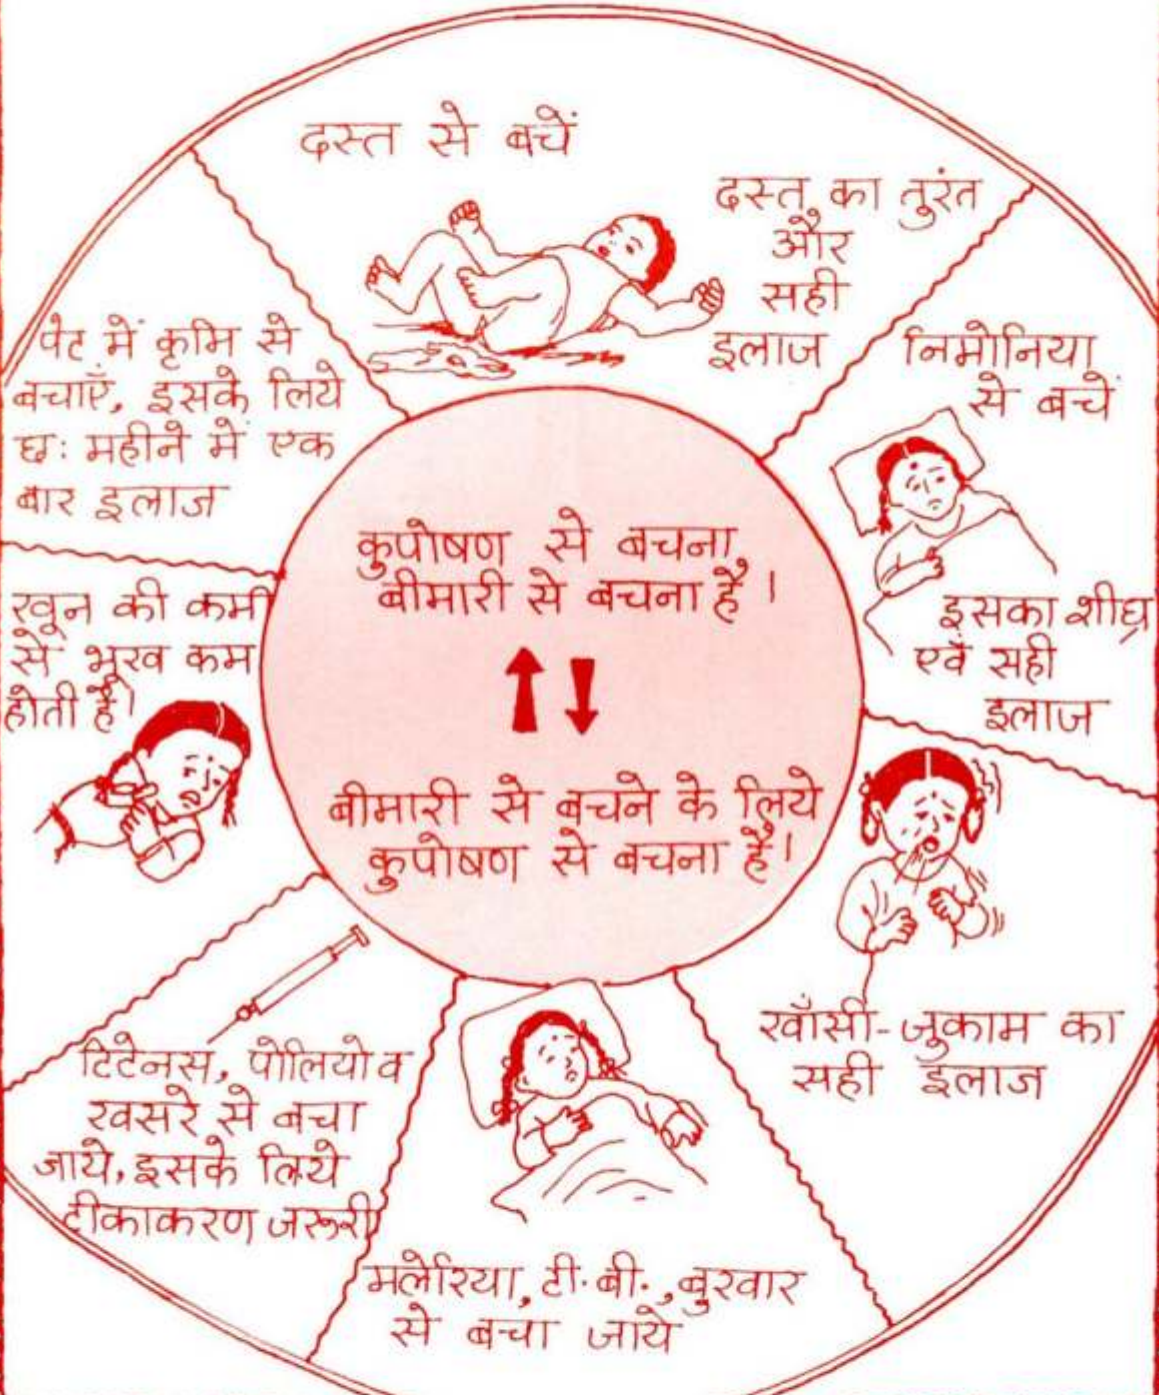 दस्त से बचें
दस्त का तुरंत
और
सही
इलाज
निमोनिया
से बचें
इसका शीघ्र
एवं सही
इलाज
खाँसी-जुकाम का
सही इलाज
मलेरिया, टी. बी., बुखार
से बचा जाये
टिटेनस, पोलियो व
खसरे से बचा
जाये, इसके लिये
टीकाकरण जरूरी
खून की कमी
से भूख कम
होती है।
पेट में कृमि से
बचाएँ, इसके लिये
छः महीने में एक
बार इलाज
कुपोषण से बचना,
बीमारी से बचना है।
बीमारी से बचने के लिये
कुपोषण से बचना है।